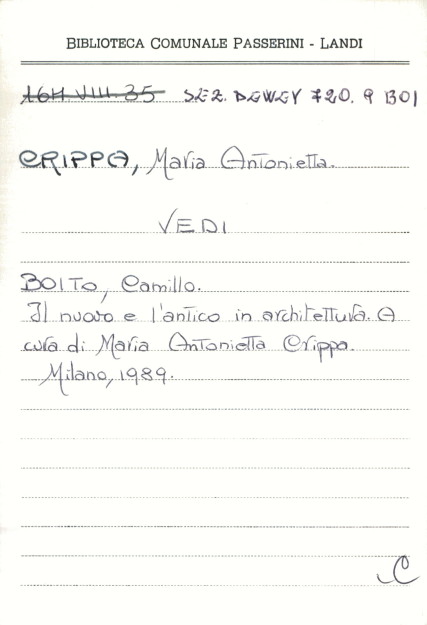 BIBLIOTECA COMUNALE PASSERINI - LANDI
16H.VIII.35 SEZ. DEWEY 720.9 BOI
CRIPPA, Maria Antonietta.
VEDI
BOITO, Camillo.
Il nuovo e l'antico in architettura. A
cura di Maria Antonietta Crippa.
Milano, 1989.
C